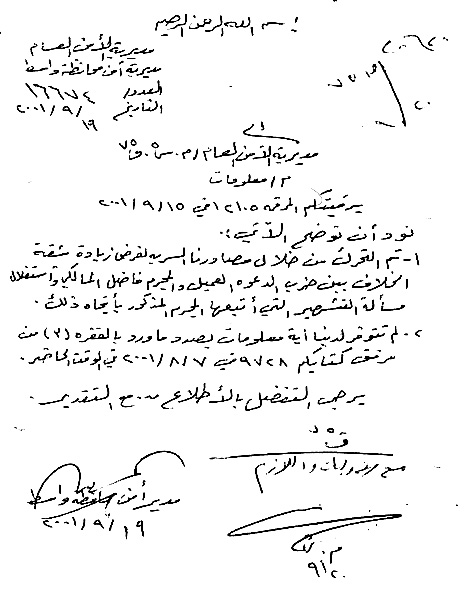 بسم الله الرحمن الرحيم
مديرية الأمن العام
مديرية أمن محافظة واسط
العدد/ ١٦٦٧٤
التاريخ ١٩/٩/٢٠٠١
الى
مديرية الأمن العام/م.س.ق٧٥
م/معلومات
برقيتكم المرقمة ١٢١٠٥ في ١٥/٩/٢٠٠١
نود أن نوضح الآتي:
١- تم التحرك من خلال مصادرنا السرية لغرض زيادة شقة
الخلاف بين حزب الدعوة العميل والمجرم فاضل المالكي واستغلال
مسألة التشهير التي أتبعها المجرم المذكور بأتجاه ذلك.
٢- لم تتوفر لدينا أية معلومات بصدد ماورد بالفقره (٣) من
مرفق كتابكم ٩٧٢٨ في ٧/٨/٢٠٠١ في الوقت الحاضر.
يرجى التفضل بالأطلاع ... مع التقدير.
ق٧٥
واللازم
مدير أمن محافظة واسط
١٩/٩/٢٠٠١
٢٠/٩